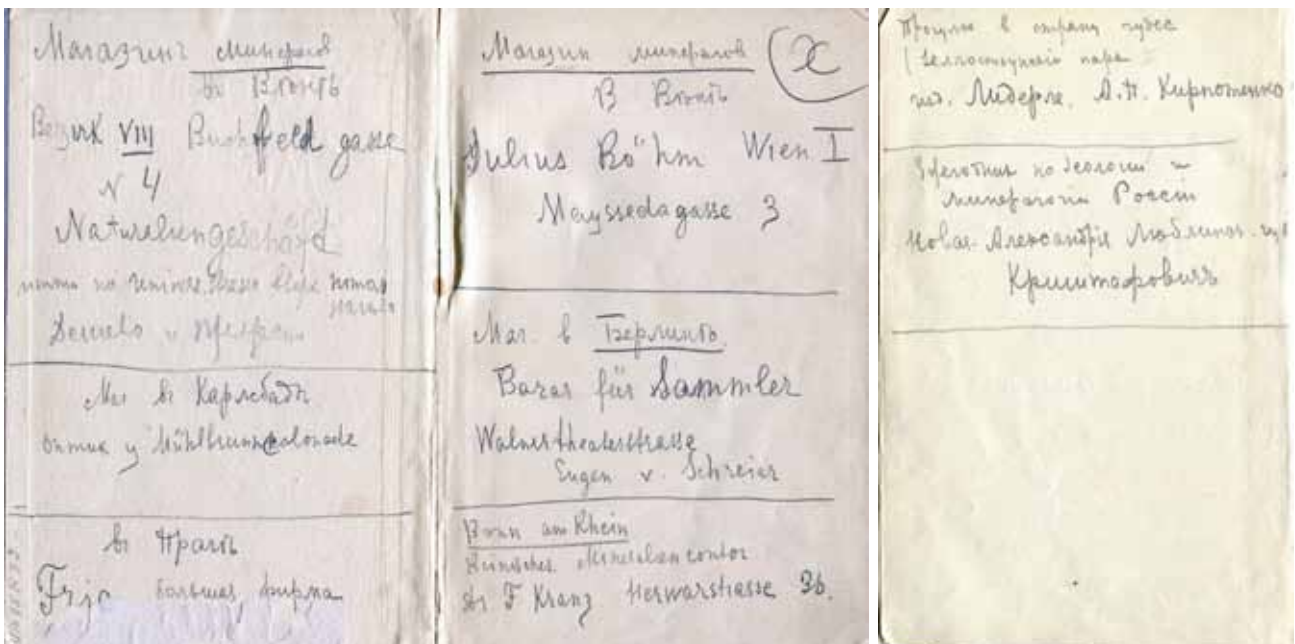 Магазинъ минералов
въ Вѣнѣ
Bezirk VIII Buchfeld gasse
N 4
Naturaliengeschäft
Дешево и
Маг въ Карлсбадѣ
оптик у Mühlbrunncolonade
въ Прагѣ
Frič большая фирма
Магазин минералов
В Вѣнѣ
x
Julius Böhm Wien I
Mayssedagasse 3
Маг. в Берлинѣ
Bazar für Sammler
Walnertheaterstrasse
Eugen v. Schreier
Bonn am Rhein
Reinisches Mineralien contor
Dr F Kranz Herwarstrasse 36.
Прогулка в страну чудес
парка
изд. Лидерле. А.Н. Кирпотенко
по геологии и
минералогии Россіи
Новая Александрія Люблинск. губ
Криштафовичъ